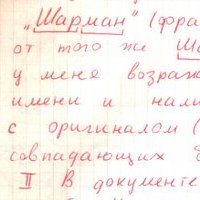 „Шарман" (фра
от того же Ша
у меня возраж
имени и нали
с оригиналом (
совпадающих б
II В документе